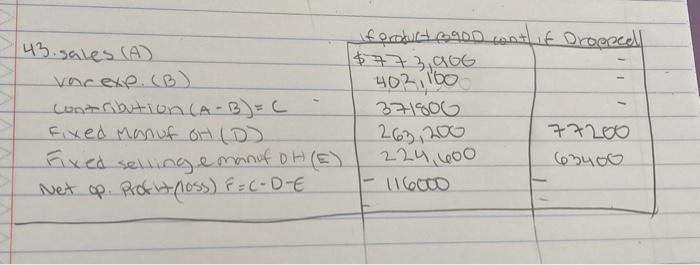 if product B90D cont if Dropped
43. sales (A) $773,900 -
var exp. (B) 402,100 -
contribution (A-B) = C 371800 -
Fixed Manuf OH (D) 263,200 77200
Fixed selling & manuf OH (E) 224,600 63400
Net op. Profit (loss) F = C-D-E - 116000 -
- -